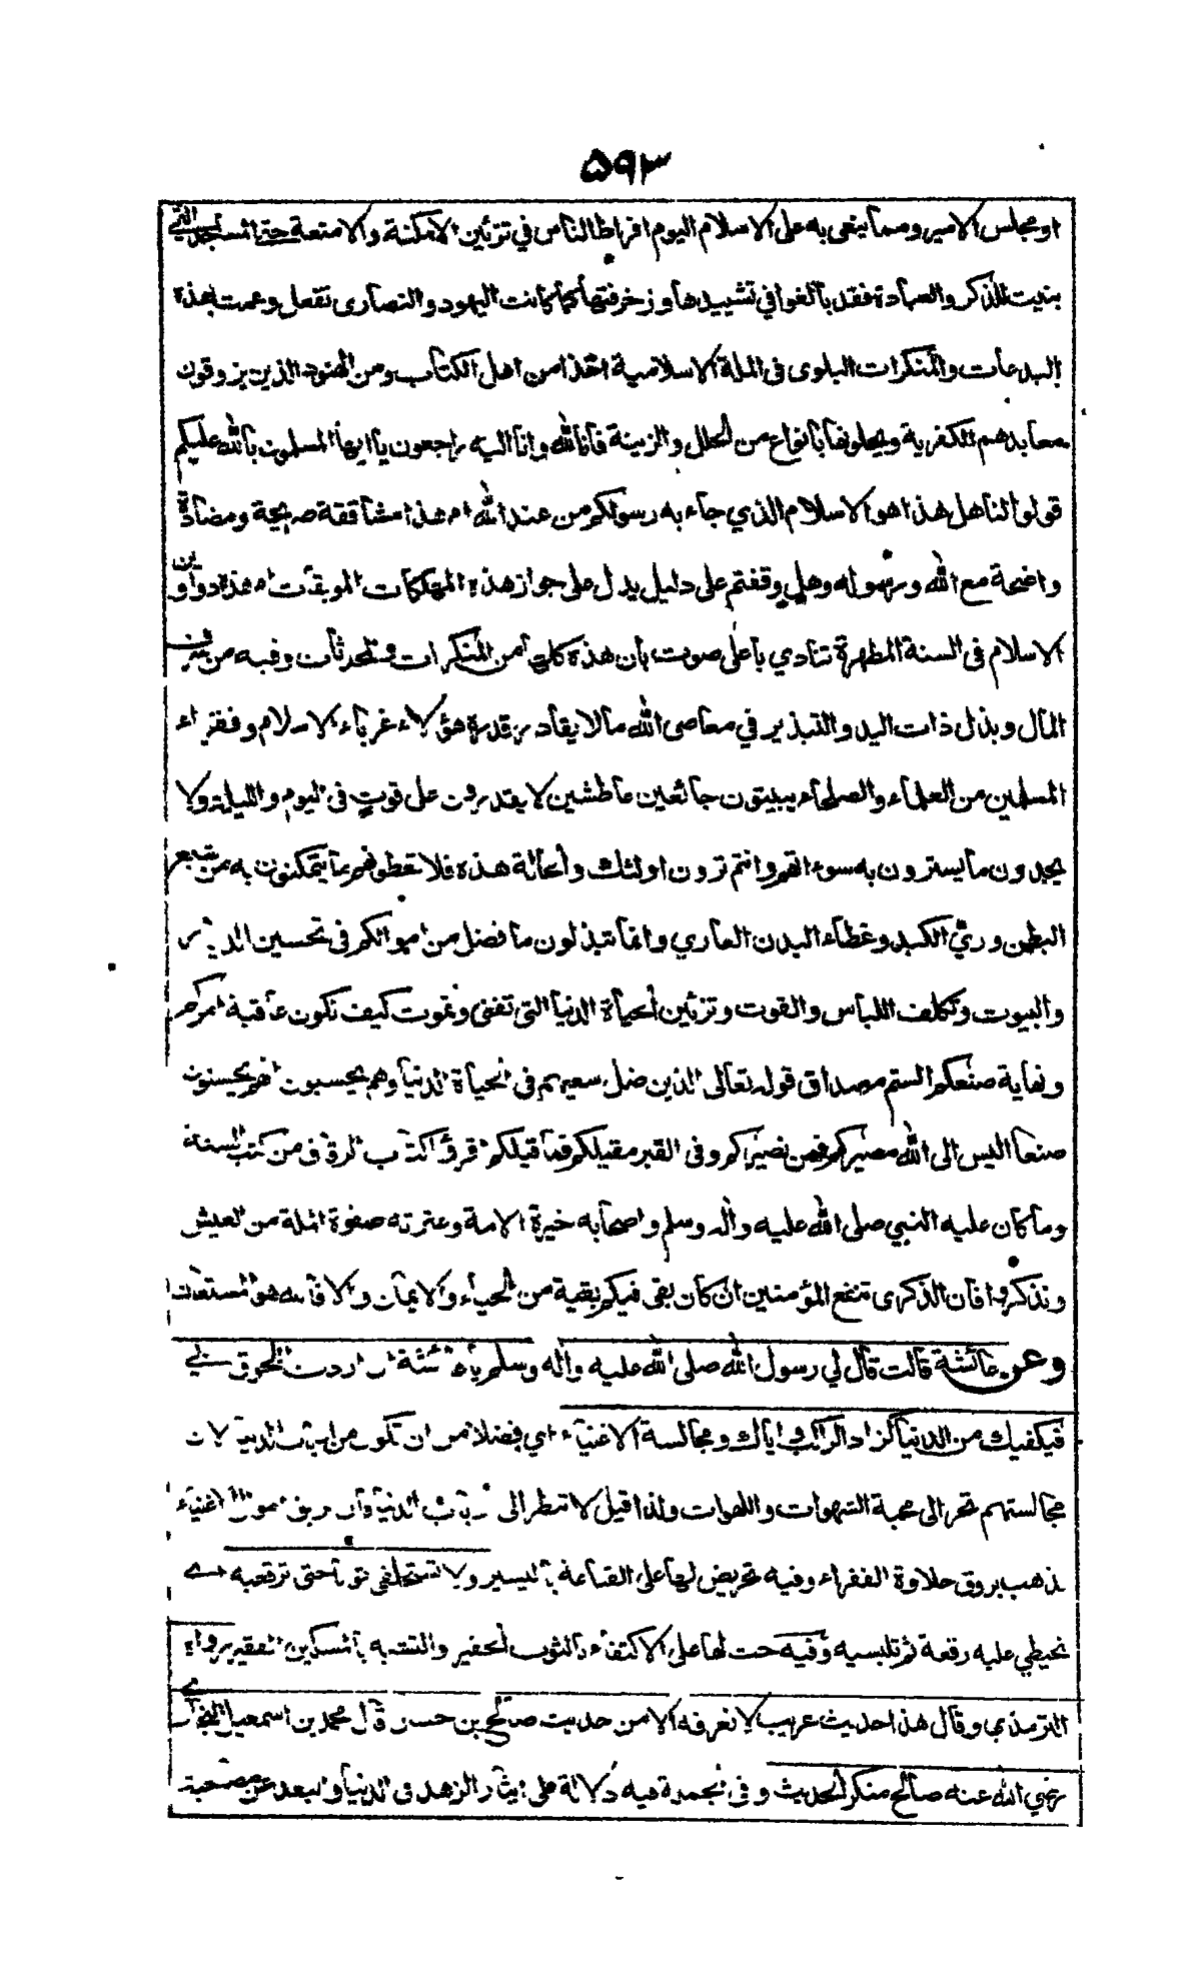 ٥٩٣
او مجلس الامير ومما ينعى به على الاسلام اليوم افراط الناس في تزئين الامكنة والامتعة حتى المساجد التي
بنيت للذكر والعبادة فقد بالغوا في تشييدها وزخرفتها كما كانت اليهود والنصارى تفعل وعمت بهذه
البدعات والمنكرات البلوى في الملة الاسلامية اخذا من اهل الكتاب ومن الهنود الذين يزوقون
معابدهم الكفرية ويحلونها بانواع من الحلل والزينة فانا لله وانا اليه راجعون يا ايها المسلمون بالله عليكم
قولوا لنا هل هذا هو الاسلام الذي جاء به رسولكم من عند الله ام هذا مشاققة صريحة ومضادة
واضحة مع الله ورسوله وهل وقفتم على دليل يدل على جواز هذه المهلكات الموبقات ام هذه دواوين
الاسلام في السنة المطهرة تنادي باعلى صوت بان هذه كلها من المنكرات والمحدثات وفيه من
المال وبذل ذات اليد والتبذير في معاصى الله ما لا يقادر قدره هؤلاء غرباء الاسلام وفقراء
المسلمين من العلماء والصلحاء يبيتون جائعين عاطشين لا يقدرون على قوت في اليوم والليلة ولا
يجدون ما يسترون به سوءاتهم وانتم ترون اولئك والحالة هذه فلا تعطونهم ما يتمكنون به من شبع
البطن وري الكبد وغطاء البدن العاري وانما تبذلون ما فضل من اموالكم في تحسين
والبيوت وتكلف اللباس والقوت وتزئين الحياة الدنيا التى تفنى وتموت كيف تكون عاقبة امركم
ونهاية صنعكم الستم مصداق قوله تعالى الذين ضل سعيهم في الحياة الدنيا وهم يحسبون انهم يحسنون
صنعا اليس الى الله مصيركم فمن نصيركم وفى القبر مقيلكم فما قيلكم اقرؤا كتاب الرقاق من كتب السنة
وما كان عليه النبي صلى الله عليه واله وسلم واصحابه خيرة الامة وعترته صفوة الملة من العيش
وتذكروا فان الذكرى تنفع المؤمنين ان كان بقى فيكم بقية من الحياء والايمان والا فالله هو المستعان
وعن عائشة قالت قال لي رسول الله صلى الله عليه واله وسلم يا عائشة ان اردت اللحوق بي
فيكفيك من الدنيا كزاد الراكب واياك ومجالسة الاغنياء اي فضلا من ان تكون من ارباب الدنيا لان
مجالستهم تجر الى محبة الشهوات واللهوات ولذا قيل لا تنظر الى ارباب الدنيا فان بريق اموال الاغنياء
يذهب برونق حلاوة الفقراء وفيه تحريض لها على القناعة باليسير ولا تستخلقي ثوبا حتى ترقعيه اي
تخيطي عليه رقعة ثم تلبسيه وفيه حث لها على الاكتفاء بالثوب الحقير والتشبه بالمسكين الفقير رواه
الترمذي وقال هذا حديث غريب لا نعرفه الا من حديث صالح بن حسان قال محمد بن اسمعيل البخاري
رضي الله عنه صالح منكر الحديث وفى الجملة فيه دلالة على ايثار الزهد في الدنيا والبعد عن صحبة